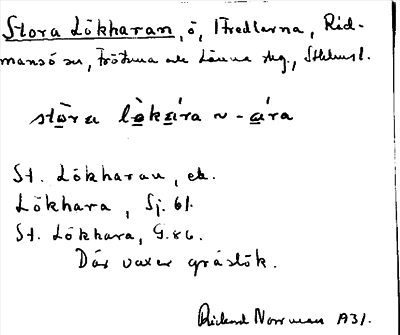 Stora Lökharan, ö, Fredlarna, Rid-
mansö sn, Frötuna och Länna skg., Sthlms l.
stòra lökaìra ~ -aíra
St. Lökharan, ek.
Lökhara, Sj. 61.
St. Lökhara, G. 86.
Där växer gräslök.
Rickard Norrman 1931.